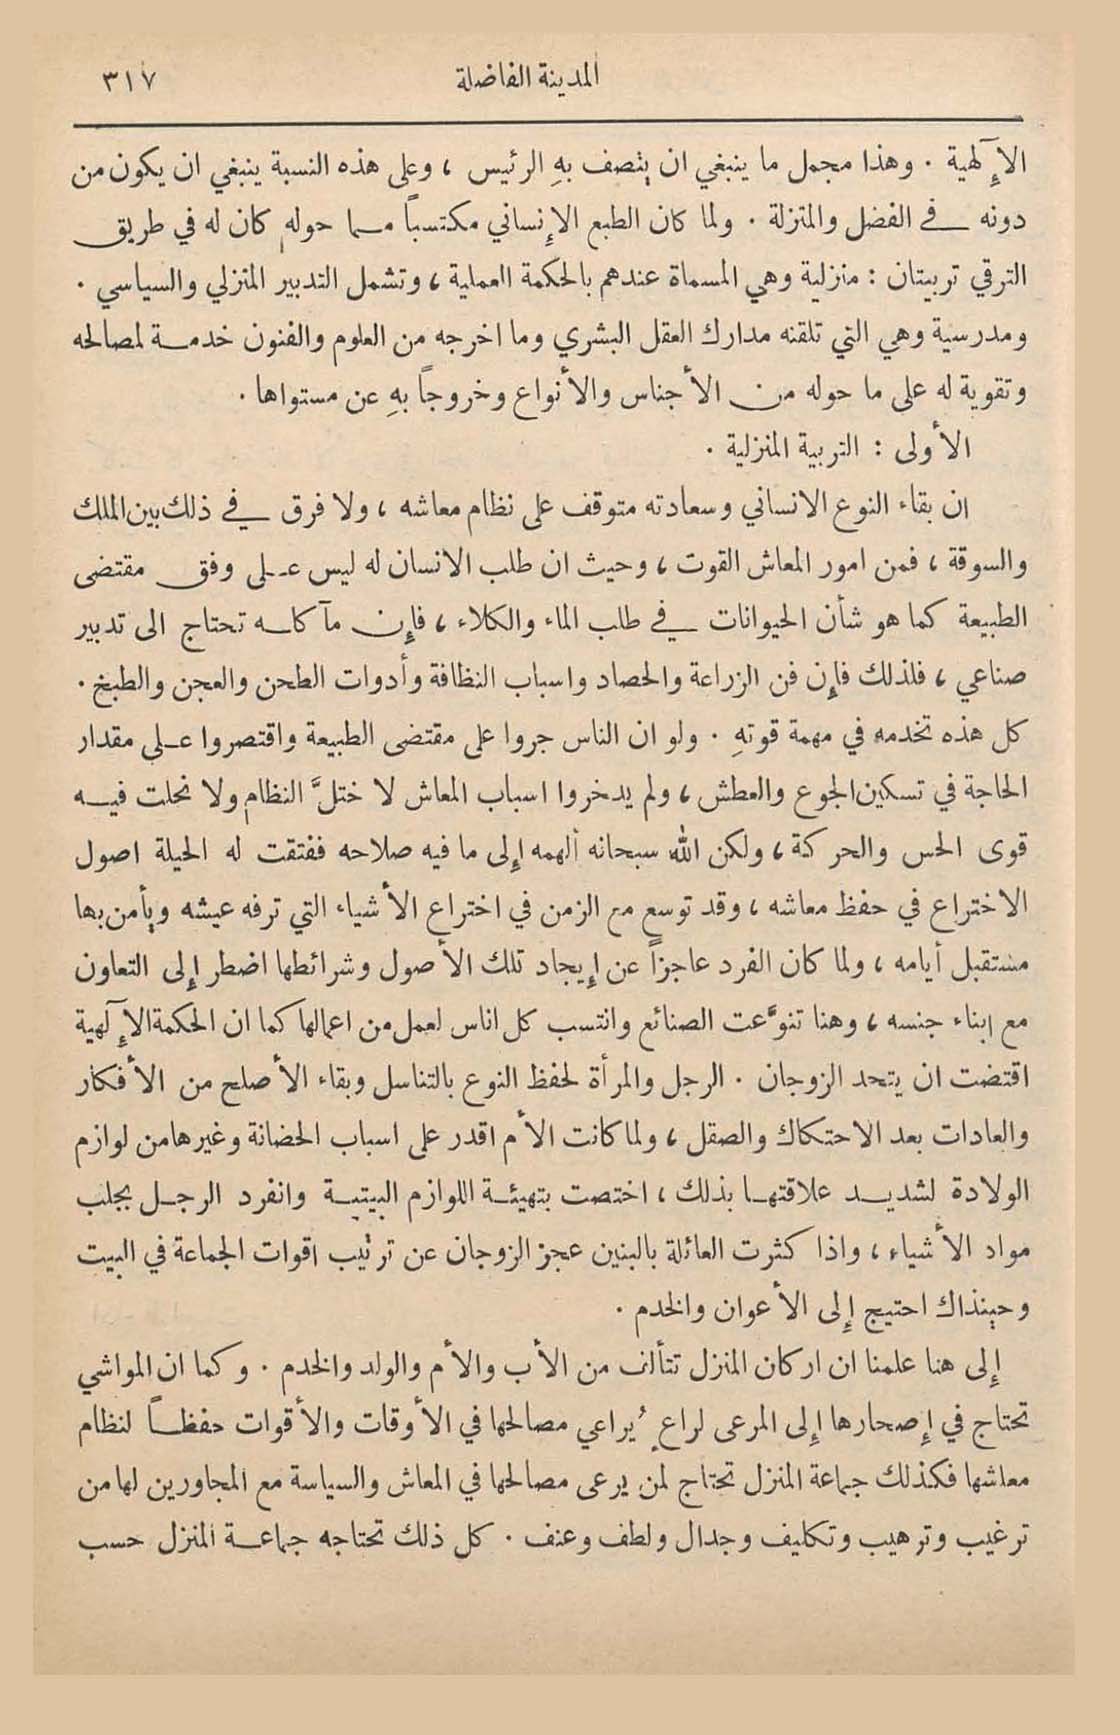 المدينة الفاضلة ٣١٧
الإلهية . وهذا مجمل ما ينبغي ان يتصف بهِ الرئيس ، وعلى هذه النسبة ينبغي ان يكون من
دونه في الفضل والمنزلة . ولما كان الطبع الإنساني مكتسباً مما حوله كان له في طريق
الترقي تربيتان : منزلية وهي المسماة عندهم بالحكمة العملية ، وتشمل التدبير المنزلي والسياسي .
ومدرسية وهي التي تلقنه مدارك العقل البشري وما اخرجه من العلوم والفنون خدمة لمصالحه
وتقوية له على ما حوله من الأجناس والأنواع وخروجاً بهِ عن مستواها .
الأولى : التربية المنزلية .
ان بقاء النوع الانساني وسعادته متوقف على نظام معاشه ، ولا فرق في ذلك بين الملك
والسوقة ، فمن امور المعاش القوت ، وحيث ان طلب الانسان له ليس على وفق مقتضى
الطبيعة كما هو شأن الحيوانات في طلب الماء والكلاء ، فإن مآكله تحتاج الى تدبير
صناعي ، فلذلك فإن فن الزراعة والحصاد واسباب النظافة وأدوات الطحن والعجن والطبخ .
كل هذه تخدمه في مهمة قوتهِ . ولو ان الناس جروا على مقتضى الطبيعة واقتصروا على مقدار
الحاجة في تسكين الجوع والعطش ، ولم يدخروا اسباب المعاش لا ختلَّ النظام ولا نحلت فيه
قوى الحس والحركة ، ولكن الله سبحانه ألهمه إلى ما فيه صلاحه ففتقت له الحيلة اصول
الاختراع في حفظ معاشه ، وقد توسع مع الزمن في اختراع الأشياء التي ترفه عيشه ويأمن بها
مستقبل أيامه ، ولما كان الفرد عاجزاً عن إيجاد تلك الأصول وشرائطها اضطر إلى التعاون
مع ابناء جنسه ، وهنا تنوَّعت الصنائع وانتسب كل اناس لعمل من اعمالها كما ان الحكمة الإلهية
اقتضت ان يتحد الزوجان . الرجل والمرأة لحفظ النوع بالتناسل وبقاء الأصلح من الأفكار
والعادات بعد الاحتكاك والصقل ، ولما كانت الأم اقدر على اسباب الحضانة وغيرها من لوازم
الولادة لشديد علاقتها بذلك ، اختصت بتهيئة اللوازم البيتية وانفرد الرجل بجلب
مواد الأشياء ، واذا كثرت العائلة بالبنين عجز الزوجان عن ترتيب اقوات الجماعة في البيت
وحينذاك احتيج إلى الأعوان والخدم .
إلى هنا علمنا ان اركان المنزل تتألف من الأب والأم والولد والخدم . وكما ان المواشي
تحتاج في إصحارها إلى المرعى لراعٍ يُراعي مصالحها في الأوقات والأقوات حفظاً لنظام
معاشها فكذلك جماعة المنزل تحتاج لمن يرعى مصالحها في المعاش والسياسة مع المجاورين لها من
ترغيب وترهيب وتكليف وجدال ولطف وعنف . كل ذلك تحتاجه جماعة المنزل حسب